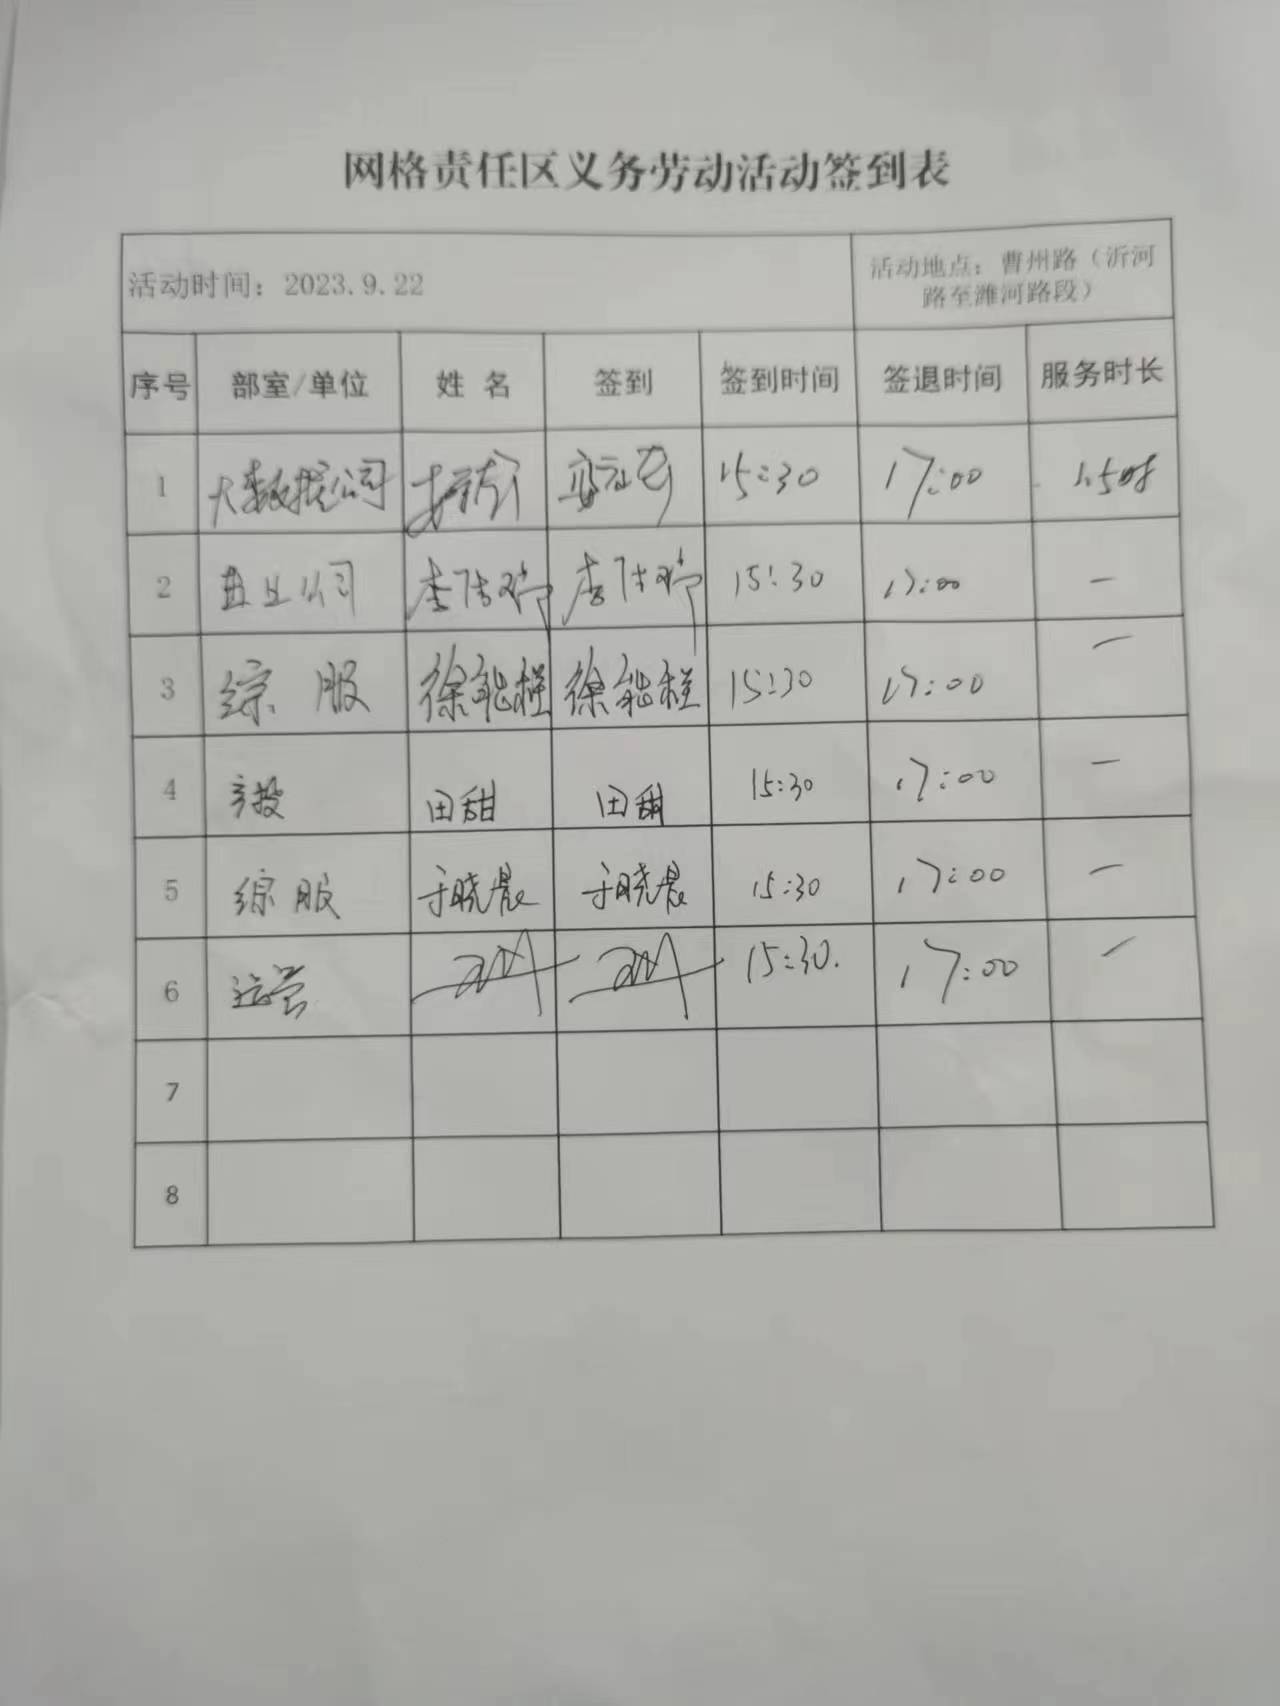 网格责任区义务劳动活动签到表
活动时间：2023.9.22
活动地点：曹州路（沂河
路至潍河路段）
序号 部室/单位 姓 名 签到 签到时间 签退时间 服务时长
1 大数据公司 15:30 17:00 1.5时
2 公司 15:30 17:00 —
3 综服 徐能程 徐能程 15:30 17:00 —
4 产投 田甜 田甜 15:30 17:00 —
5 综服 于晓晨 于晓晨 15:30 17:00 —
6 运营 15:30. 17:00 —
7
8